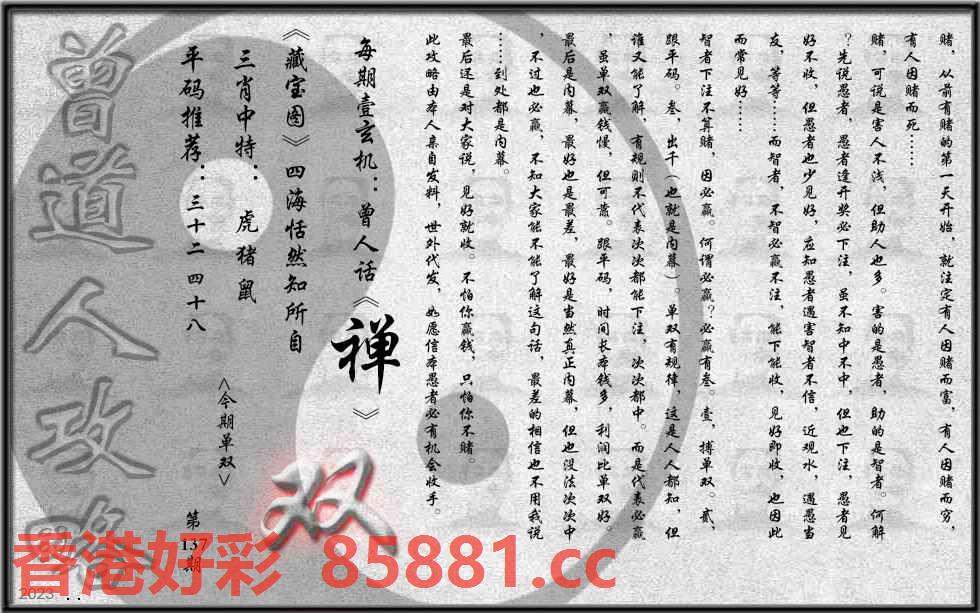 赌，从前有赌的第一天开始，就注定有人因赌而富，有人因赌而穷，
有人因赌而死……
赌，可说是害人不浅，但助人也多。害的是愚者，助的是智者。何解
？先说愚者，愚者逢开奖必下注，虽不知中不中，但也下注，愚者见
好不收，但愚者也少见好，应知愚者遇害智者不信，近观水，遇愚当
友，等等……而智者，不智必赢不注，能下能收，见好即收，也因此
而常见好……
智者下注不算赌，因必赢。何谓必赢？必赢有叁。壹，搏单双。贰，
跟平码。叁，出千（也就是内幕）。单双有规律，这是人人都知，但
谁又能了解，有规则不代表次次都能下注，次次都中。而是代表必赢
，虽单双赢钱慢，但可靠。跟平码，时间长本钱多，利润比单双好。
最后是内幕，最好也是最差，最好是当然真正内幕，但也没法次次中
，不过也必赢，不知大家能不能了解这句话，最差的相信也不用我说
……到处都是内幕。
最后还是对大家说，见好就收。不怕你赢钱，只怕你不赌。
此攻略由本人亲自发料，世外代发，如愿信本愚者必有机会收手。
每期壹玄机：曾人话《禅》
《藏宝图》四海恬然知所自
三肖中特：虎猪鼠
平码推荐：三十二 四十八
<今期单双>
双
第
137
期
曾道人攻略
香港好彩 85881.cc
2023